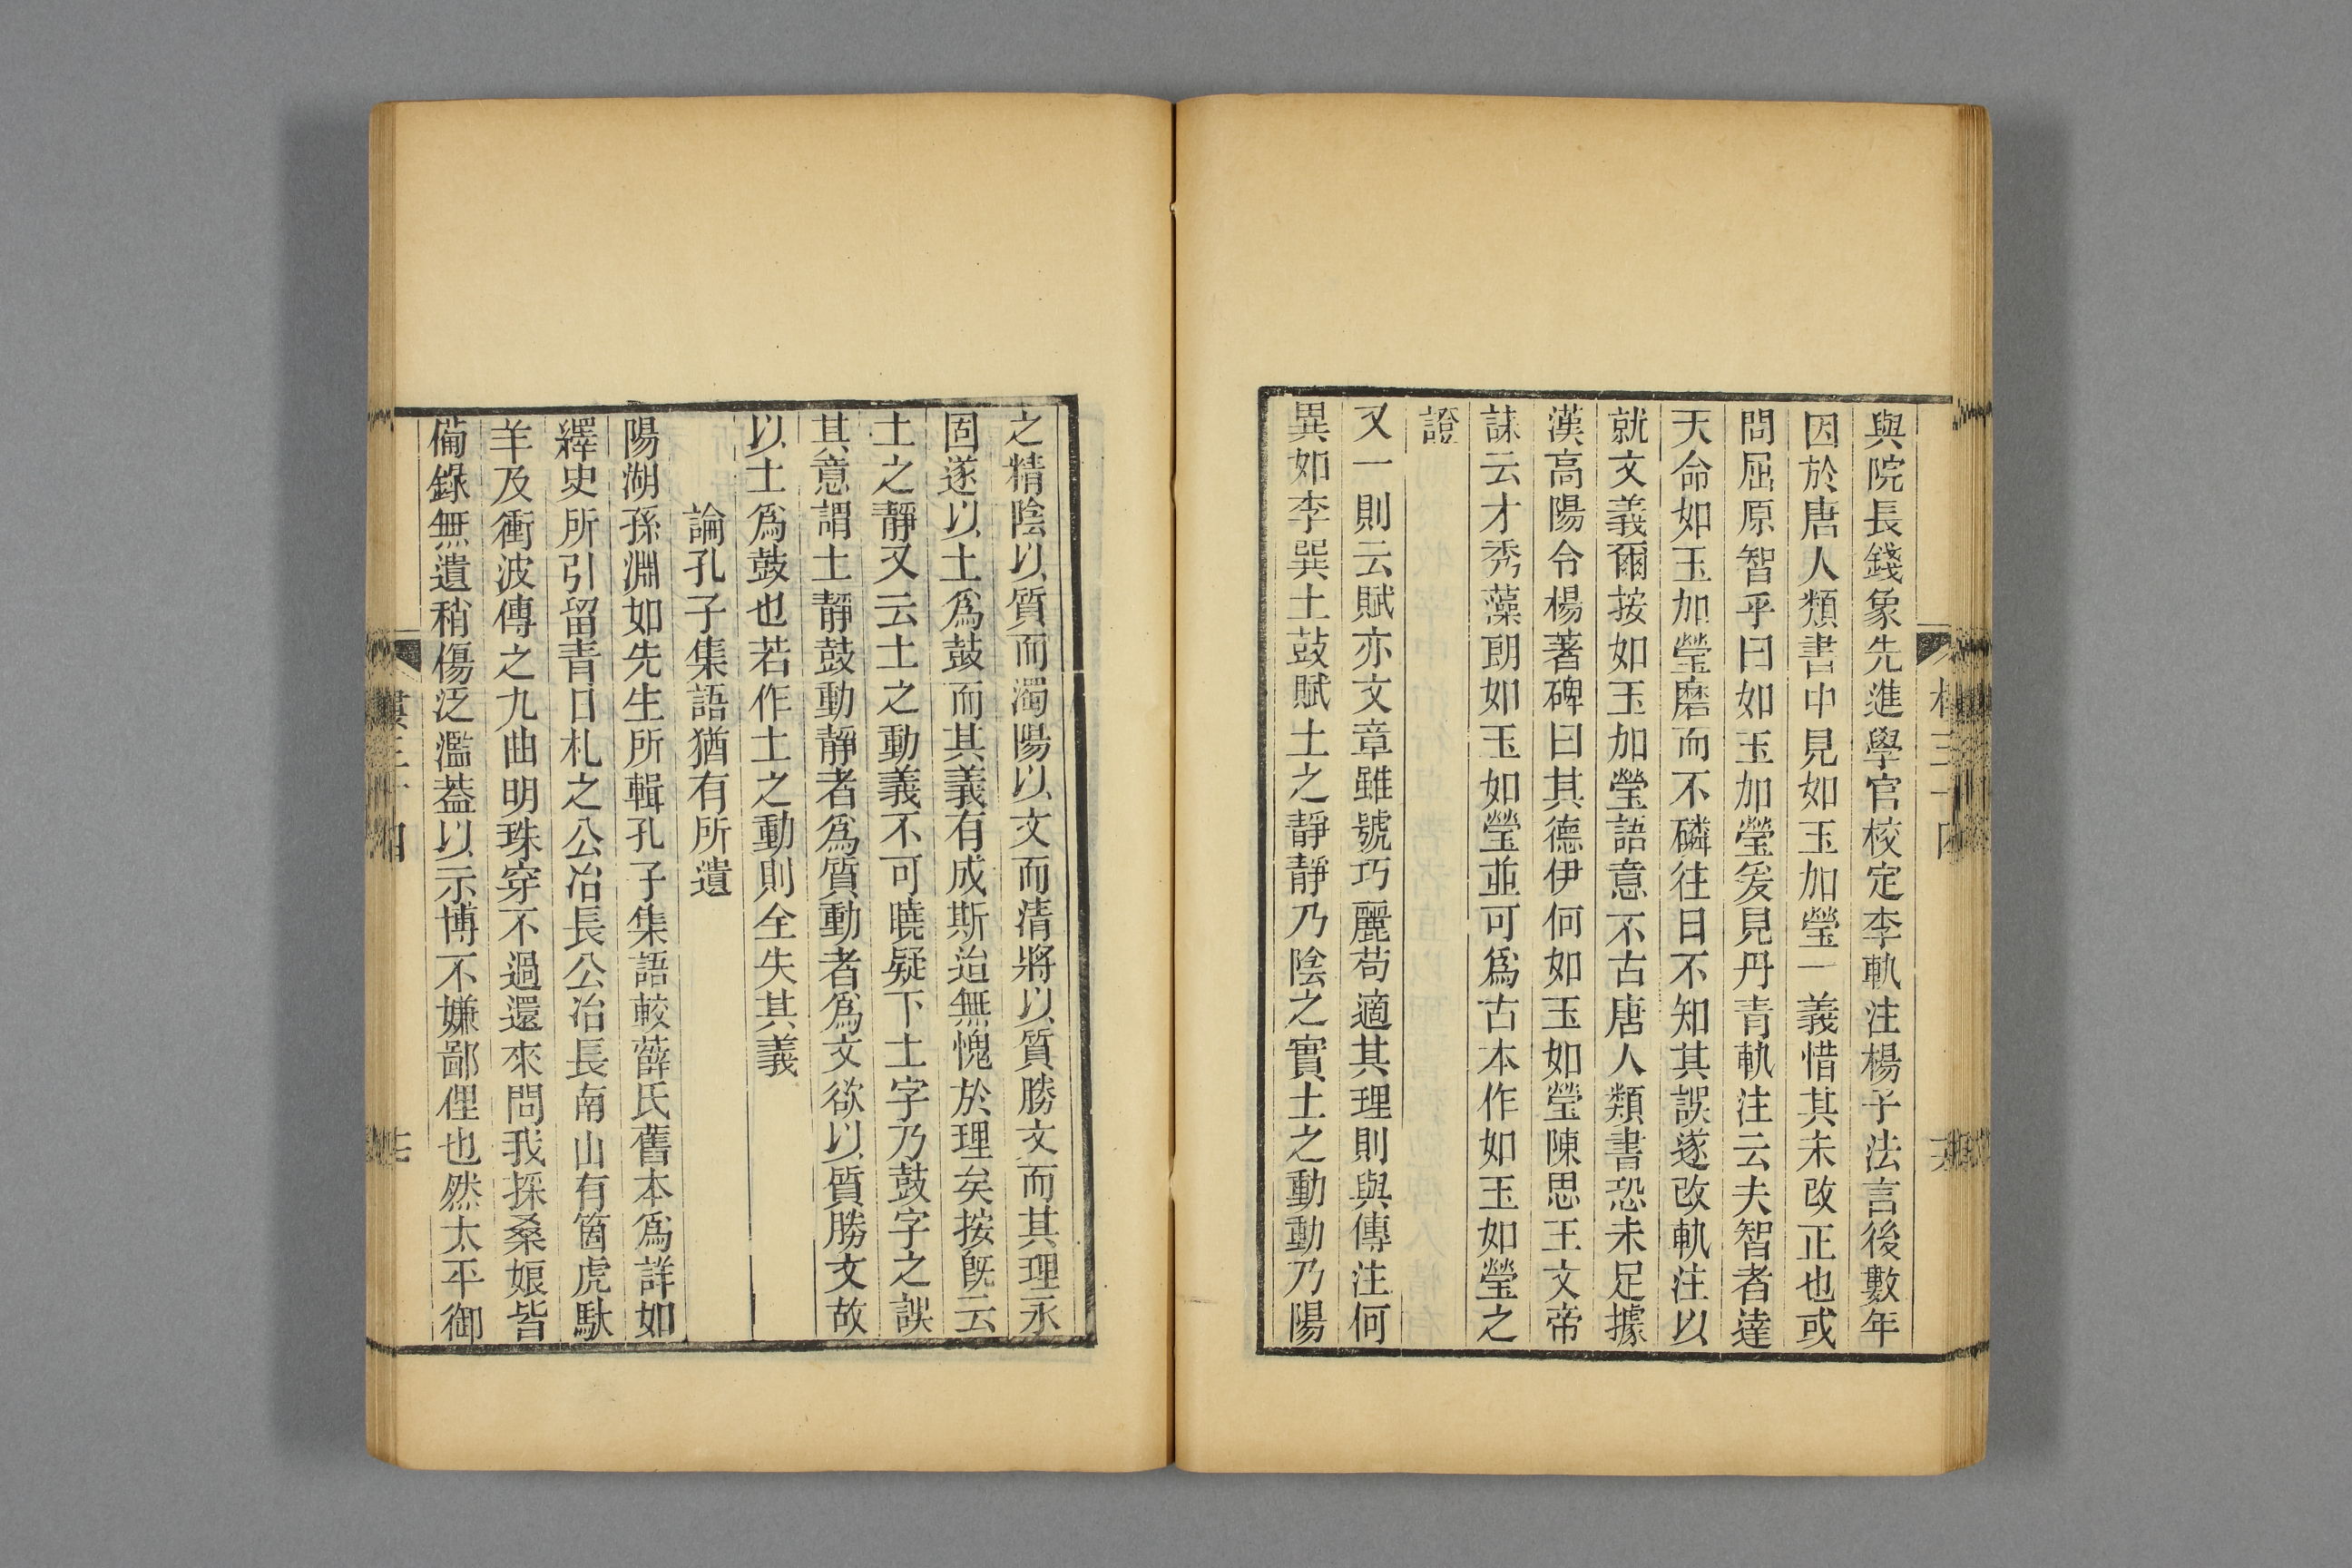 與院長錢象先進學官校定李軌注楊子法言後數年
因於唐人類書中見如玉加瑩一義惜其未改正也或
問屈原智乎曰如玉加瑩爰見丹青軌注云夫智者達
天命如玉加瑩磨而不磷往日不知其誤遂改軌注以
就文義爾按如玉加瑩語意不古唐人類書恐未足據
漢高陽令楊著碑曰其德伊何如玉如瑩陳思王文帝
誄云才秀藻朗如玉如瑩並可爲古本作如玉如瑩之
證
又一則云賦亦文章雖號巧麗苟適其理則與傳注何
異如李巽土鼓賦土之靜靜乃陰之實土之動動乃陽
之精陰以質而濁陽以文而清將以質勝文而其理永
固遂以土爲鼓而其義有成斯迨無愧於理矣按旣云
土之靜又云土之動義不可曉疑下土字乃鼓字之誤
其意謂土靜鼓動靜者爲質動者爲文欲以質勝文故
以土爲鼓也若作土之動則全失其義
論孔子集語猶有所遺
陽湖孫淵如先生所輯孔子集語較薛氏舊本爲詳如
繹史所引留青日札之公冶長公冶長南山有箇虎馱
羊及衝波傳之九曲明珠穿不過還來問我採桑娘皆
備錄無遺稍傷泛濫葢以示博不嫌鄙俚也然太平御